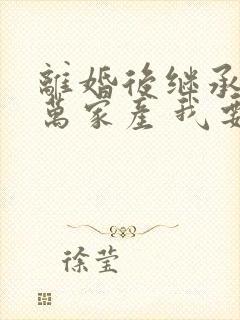 離婚後继承
萬家產我要
徐莹